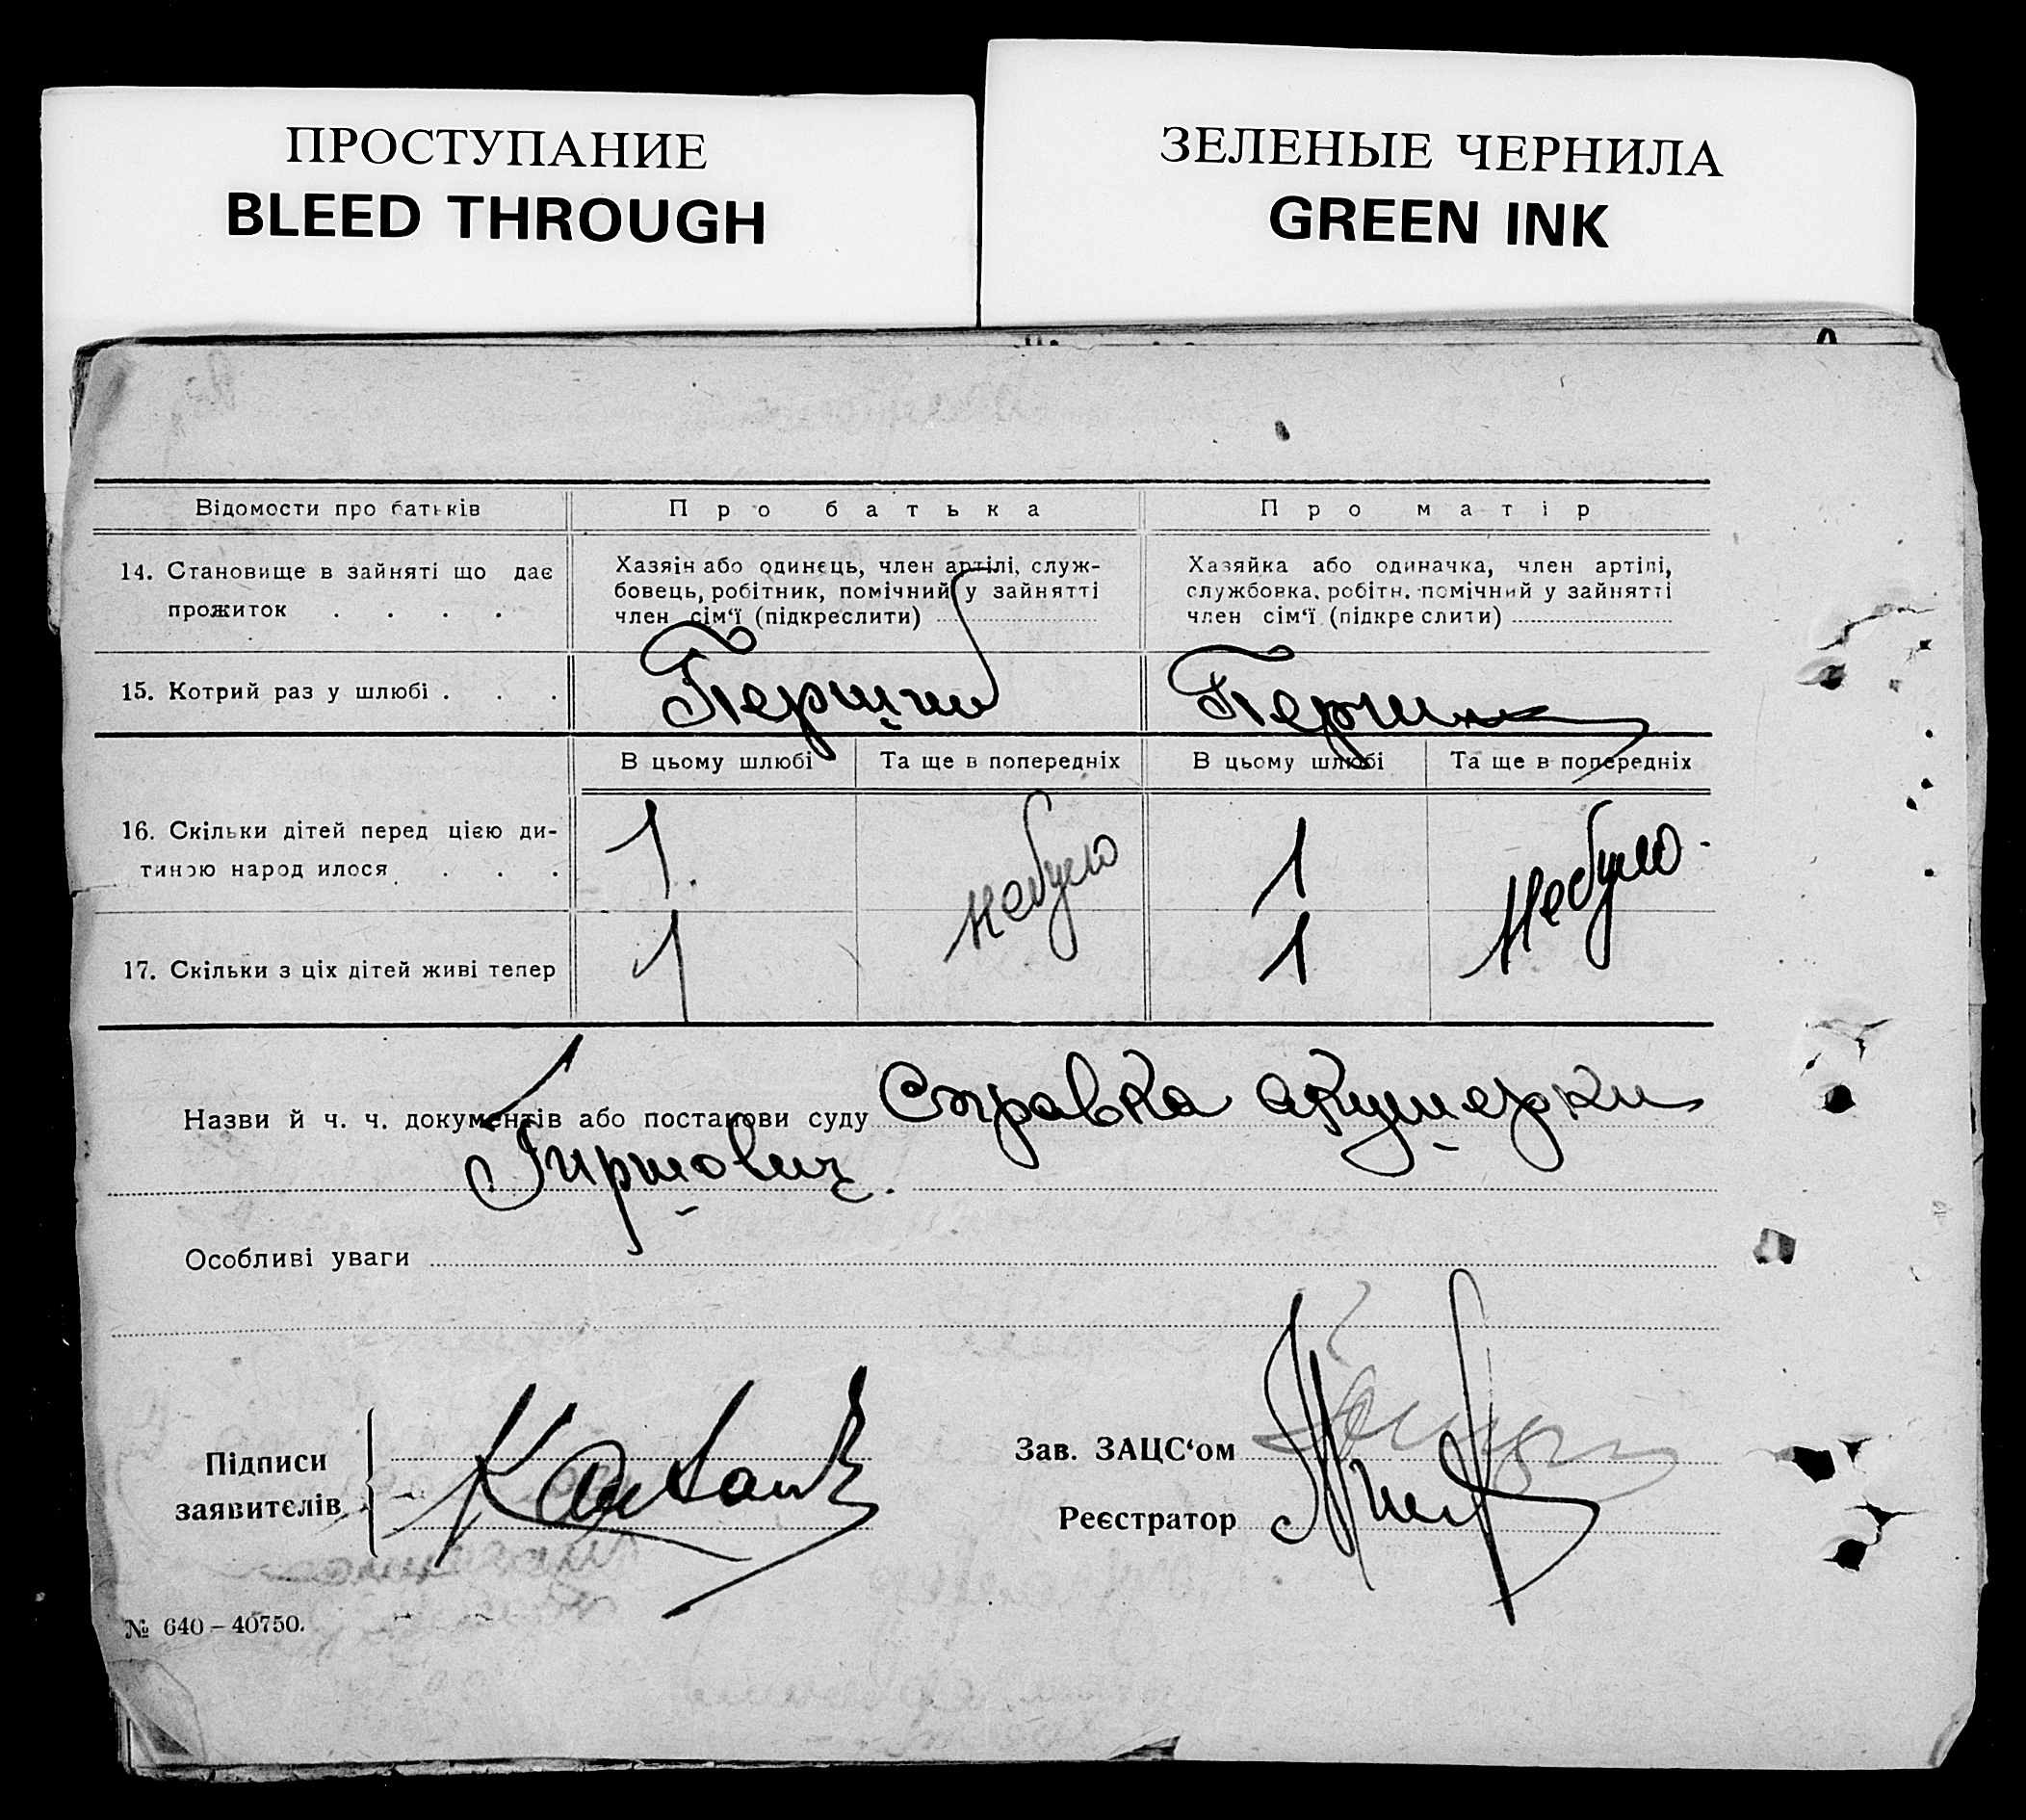 ПРОСТУПАНИЕ
BLEED THROUGH
ЗЕЛЕНЫЕ ЧЕРНИЛА
GREEN INK
Відомости про батьків
Про батька
Про матір
14. Становище в зайняті що дає
прожиток . . . .
Хазяін або одинець, член артілі, служ-
бовець, робітник, помічний у зайнятті
член сім‘ї (підкреслити)
Хазяйка або одиначка, член артілі,
службовка, робітн. помічний у зайнятті
член сім‘ї (підкреслити)
15. Котрий раз у шлюбі . . .
Перший
Перший
В цьому шлюбі
Та ще в попередніх
В цьому шлюбі
Та ще в попередніх
16. Скільки дітей перед цією ди-
тиною народилося . . .
1.
небуло
1
небуло
17. Скільки з ціх дітей живі тепер
1
1
Назви й ч. ч. документів або постанови суду Справка акушерки
Гиршович.
Особливі уваги
Підписи
заявителів
Зав. ЗАЦС‘ом
Реєстратор
№ 640 – 40750.